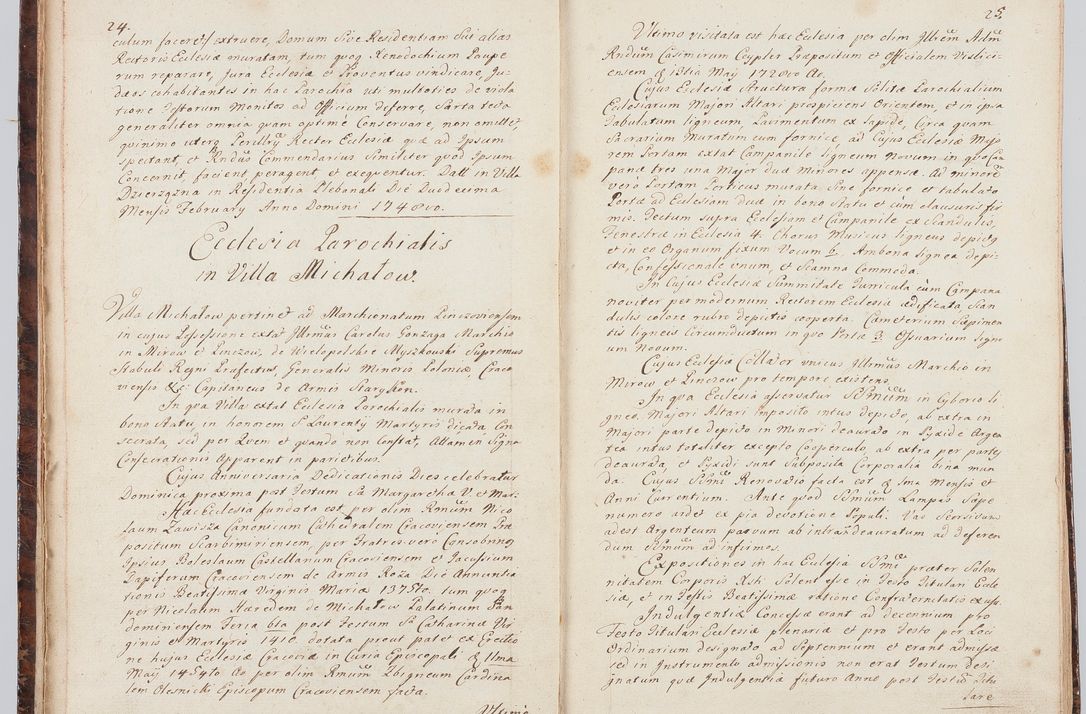 24.
culum facere et extruere, Domum sive Residentiam sui alias
Rectoris Ecclesiæ muratam, tum quoq Xenodochium Paupe
rum reparare, Jura Ecclesiæ et Proventus vindicare, Ju-
dæos cohabitantes in hac Parochia uti multoties de viola
tione Festorum Monitos ad Officium deferre, Sarta tecta
generaliter omnia quam optimè Conservare, non omittet,
quinimo uterq Perillris Rector Ecclesiæ quæ ad Ipsum
spectant, et Rndus Commendarius similiter quod Ipsum
Concernit, facient peragent, et exequentur. Datt in Villa
Dzierzązna in Residentia Plebanali Die Duodecima
Mensis February Anno Domini 1748vo.
Ecclesia Parochialis
in Villa Michałow.
Villa Michałow pertinet ad Marchionatum Pinczoviensem
in cujus Possessione extat Illrimus Carolus Gonzaga Marchio
in Mirow et Pinczow, de Wielopolskie Myszkowski Supremus
Stabuli Regni Præfectus, Generalis Minoris Poloniæ, Craco
viensis &c: Capitaneus de Armis Starykon.
In qva Villa extat Ecclesia Parochialis murata in
bono statu, in honorem S Laurenty Martyris dicata Con
secrata, sed per Quem et quando non Constat, Attamen Signa
Consecrationis Apparent in parietibus.
Cujus Anniversaria Dedicationis Dies celebratur
Dominica proxima post Festum Sæ Margarethæ V. et Mar:
Hæc Ecclesia fundata est per olim Rndum Nico
laum Zawisza Canonicum Cathedralem Cracoviensem Præ
positum Skarbimiriensem, per Fratres verò Consobrinos
Ipsius Boleslaum Castellanum Cracoviensem et Jacussium
Dapiferum Cracoviensem de Armis Roża Die Annuntia
tionis Beatissimæ Virginis Mariæ 1375to. tum quoq
per Nicolaum Hæredem de Michałow Palatinum San
domiriensem Feria 6ta post Festum Sæ Catharinæ Vir
ginis et Martyris 1410. dotata prout patet ex Erectio
ne hujus Ecclesiæ Cracoviæ in Curia Episcopali d 11ma
May 1454to Ao per olim Rmum Zbigneum Cardina
lem Olesnicki Episcopum Cracoviensem facta.
Ultimo
25.
Ultimo visitata est hæc Ecclesia per olim Illrem Adm
Rndum Casimirum Ceypler Præpositum et Officialem Vislici-
ensem d 13tia May 1728vo Ao.
Cujus Ecclesiæ structura forma solita Parochialium
Ecclesiarum Majori Altari prospiciens Orientem, et in ipsa
Tabulatum ligneum Pavimentum ex lapide, Circa quam
Sacrarium Muratum cum fornice, ad Cujus Ecclesiæ Majo
rem Portam extat Campanile ligneum Novum in quo Cam
panæ tres una Major duæ minores appensæ. Ad minorē
verò Portam Porticus murata sine fornice et tabulato
Portæ ad Ecclesiam duæ in bono statu et cum clausuris fir
mis. Tectum supra Ecclesiam et Campanile ex Scandulis,
Fenestræ in Ecclesia 4. Chorus Musicus ligneus depictq
et in eo Organum fixum Vocum 6. Ambona lignea depi-
cta, Confessionale unum, et Scamna Commoda.
In Cujus Ecclesiæ Summitate Turricula cum Campana
noviter per modernum Rectorem Ecclesiæ ædificata, Scan
dulis colore rubro depictis cooperta. Cæmeterium Sæpimen
tis ligneis Circumductum in quo Portæ 3. Ossuarium lign
um Novum.
Cujus Ecclesiæ Collator unicus Illrimus Marchio in
Mirow et Pinczow pro tempore existens.
In qva Ecclesia asservatur SSmum in Cyborio li
gneo, Majori Altari imposito intus depicto, ab extra in
Majori parte depicto in Minori deaurato in Pyxide Argen
tea intus totaliter excepto Cooperculo, ab extra per partes
deaurata, et Pyxidi sunt Subposita Corporalia bina mun
da. Cujus SSmi Renovatio facta est d 1ma Mensis et
Anni Currentium. Ante quod SSmum Lampas sæpe
numero ardet ex pia devotione Populi. Vas Seorsivum
adest Argenteum parvum ab intra deauratum ad deferen
dum SSmum ad infirmos.
Expositiones in hac Ecclesia SSmi præter Solen
nitatem Corporis Xsti Solent esse in Festo Titulari Eccle
siæ, et in Festis Beatissimæ ratione Confraternitatis ex usu.
Indulgentiæ Concessæ erant ad decennium pro
Festo Titulari Ecclesiæ plenariæ et pro Festo per Loci
Ordinarium designato ad Septennium et erant admissæ
sed in Instrumento admissionis non erat Festum desi
gnatum quæ Indulgentiæ futuro Anno post Festum Titu
lare